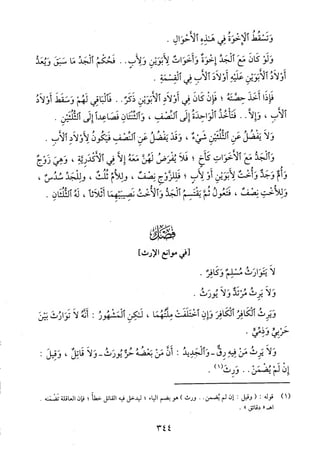 وَتَسْقُطُ الْإِخْوَةُ فِي هَذِهِ الْأَحْوَالِ .
وَلَوْ كَانَ مَعَ الْجَدِّ إِخْوَةٌ وَأَخَوَاتٌ لِأَبَوَيْنِ وَلِأَبٍ . . فَحُكْمُ الْجَدِّ مَا سَبَقَ وَيُعَدُّ
أَوْلَادُ الْأَبَوَيْنِ عَلَيْهِ أَوْلَادَ الْأَبِ فِي الْقِسْمَةِ .
فَإِذَا أَخَذَ حِصَّتَهُ ؛ فَإِنْ كَانَ فِي أَوْلَادِ الْأَبَوَيْنِ ذَكَرٌ . . فَالْبَاقِي لَهُمْ وَسَقَطَ أَوْلَادُ
الْأَبِ ، وَإِلَّا . . فَتَأْخُذُ الْوَاحِدَةُ إِلَى النِّصْفِ ، وَالثِّنْتَانِ فَصَاعِدًا إِلَى الثُّلُثَيْنِ .
وَلَا يَفْضُلُ عَنِ الثُّلُثَيْنِ شَيْءٌ ، وَقَدْ يَفْضُلُ عَنِ النِّصْفِ فَيَكُونُ لِأَوْلَادِ الْأَبِ .
وَالْجَدُّ مَعَ الْأَخَوَاتِ كَأَخٍ ؛ فَلَا يُفْرَضُ لَهُنَّ مَعَهُ إِلَّا فِي الْأَكْدَرِيَّةِ ، وَهِيَ زَوْجٌ
وَأُمٌّ وَجَدٌّ وَأُخْتٌ لِأَبَوَيْنِ أَوْ لِأَبٍ ؛ فَلِلزَّوْجِ نِصْفٌ ، وَلِلْأُمِّ ثُلُثٌ ، وَلِلْجَدِّ سُدُسٌ ،
وَلِلْأُخْتِ نِصْفٌ ، فَتَعُولُ ثُمَّ يَقْتَسِمُ الْجَدُّ وَالْأُخْتُ نَصِيبَيْهِمَا أَثْلَاثًا ، لَهُ الثُّلُثَانِ .
فَصْلٌ
[في موانع الإرث]
لَا يَتَوَارَثُ مُسْلِمٌ وَكَافِرٌ .
وَلَا يَرِثُ مُرْتَدٌّ وَلَا يُورَثُ .
وَيَرِثُ الْكَافِرُ الْكَافِرَ وَإِنِ اخْتَلَفَتْ مِلَّتُهُمَا ، لَكِنِ الْمَشْهُورُ : أَنَّهُ لَا تَوَارُثَ بَيْنَ
حَرْبِيٍّ وَذِمِّيٍّ .
وَلَا يَرِثُ مَنْ فِيهِ رِقٌّ - وَالْجَدِيدُ : أَنَّ مَنْ بَعْضُهُ حُرٌّ يُورَثُ - وَلَا قَاتِلٌ ، وَقِيلَ :
إِنْ لَمْ يُضْمَنْ . . وَرِثَ (١) .
(١) قوله : ( وقيل : إن لم يُضمن . . ورث ) هو بضم الياء ؛ ليدخل فيه القاتل خطأ ؛ فإن العاقلة تضمنه .
اهـ « دقائق » .
٣٤٤